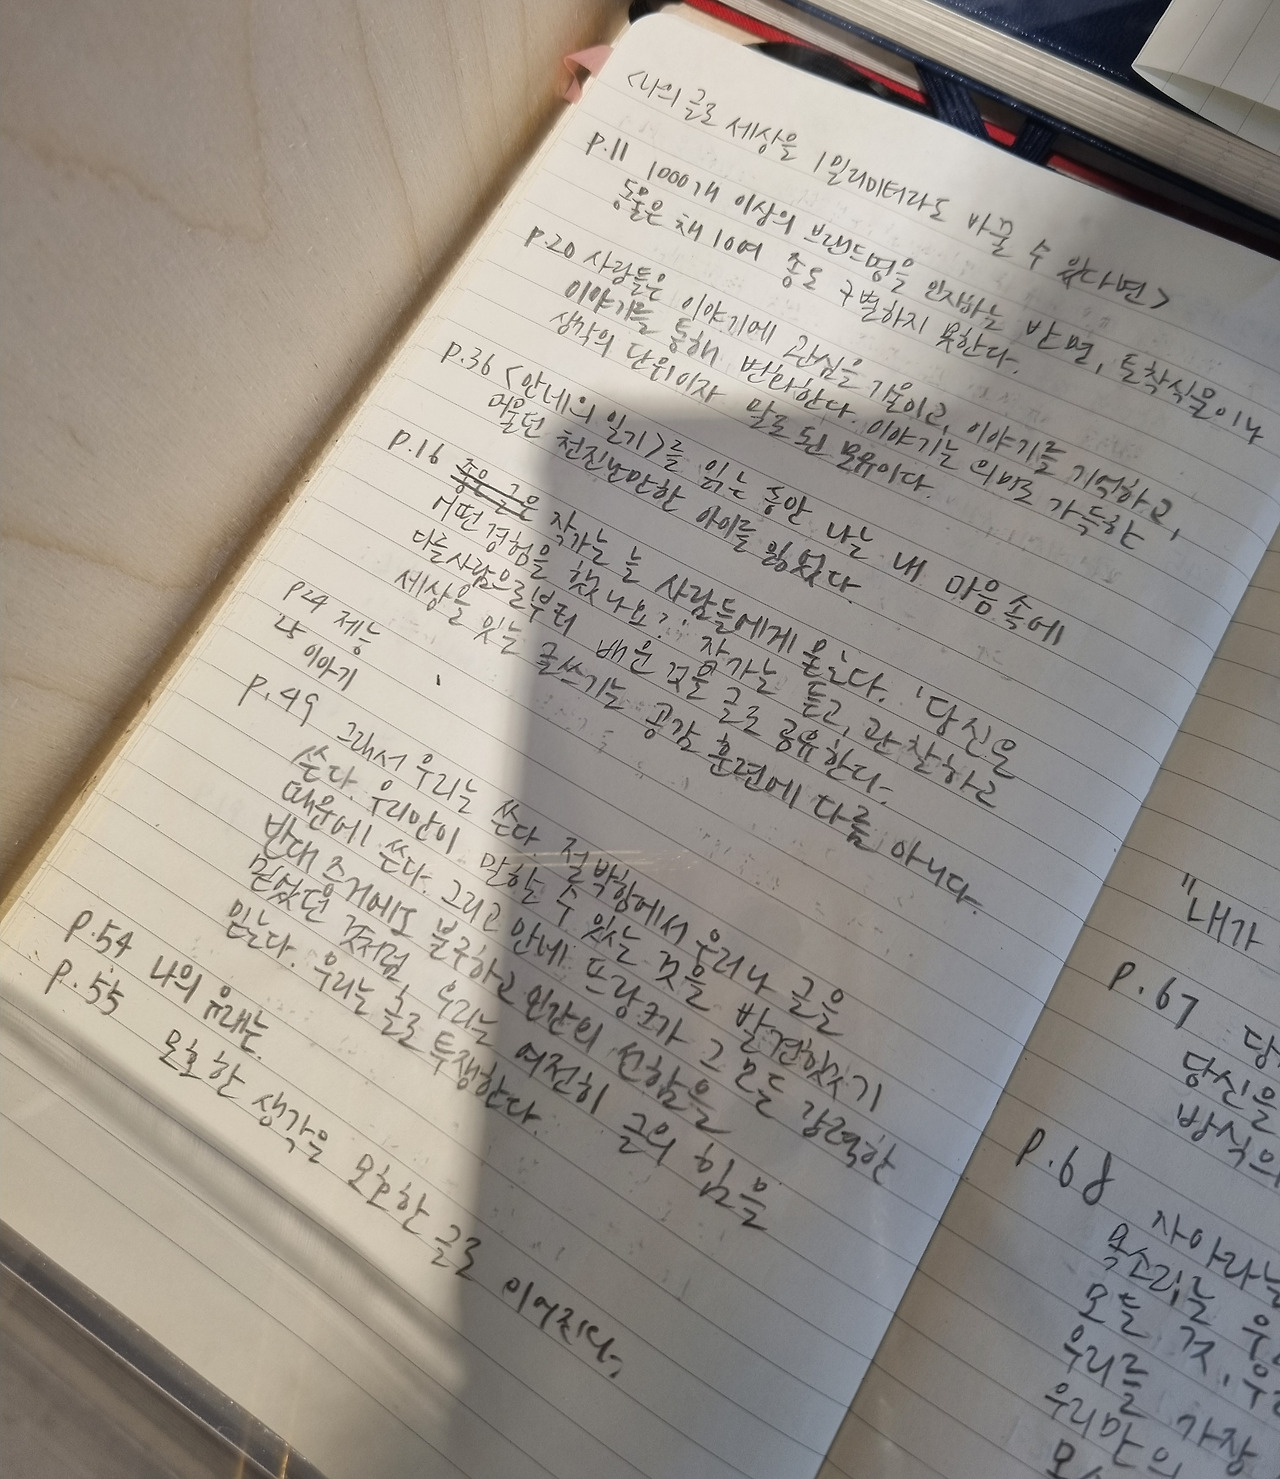 <나의 글로 세상을 1밀리미터라도 바꿀 수 있다면>
p.11 1000개 이상의 브랜드명을 인지하는 반면, 토착식물이나
동물은 채 10여 종도 구별하지 못한다.
p.20 사람들은 이야기에 관심을 기울이고, 이야기를 기억하고,
이야기를 통해 변화한다. 이야기는 의미로 가득한
생각의 단위이자 말로 된 모유이다.
p.36 <안네의 일기>를 읽는 동안 나는 내 마음 속에
머물던 천진난만한 아이를 잃었다.
p.16 좋은 글은 작가는 늘 사람들에게 묻는다. '당신은
어떤 경험을 했나요?' 작가는 듣고, 관찰하고
다른사람으로부터 배운 것을 글로 공유한다.
세상을 잇는 글쓰기는 공감 훈련에 다름 아니다.
p24 재능
25 이야기
p.49 그래서 우리는 쓴다. 절박함에서 우러나 글을
쓴다. 우리만이 말할 수 있는 것을 발견했기
때문에 쓴다. 그리고 안네 프랑크가 그 모든 강력한
반대 증거에도 불구하고 인간의 선함을
믿었던 것처럼, 우리는 여전히 글의 힘을
믿는다. 우리는 글로 투쟁한다.
p.54 나의 유래는.
p.55 모호한 생각은 모호한 글로 이어진다.
"내가
p.67 당
당신을
방식의
p.68 자아라는
목소리는
모든 것,
우리를 가장
우리만의